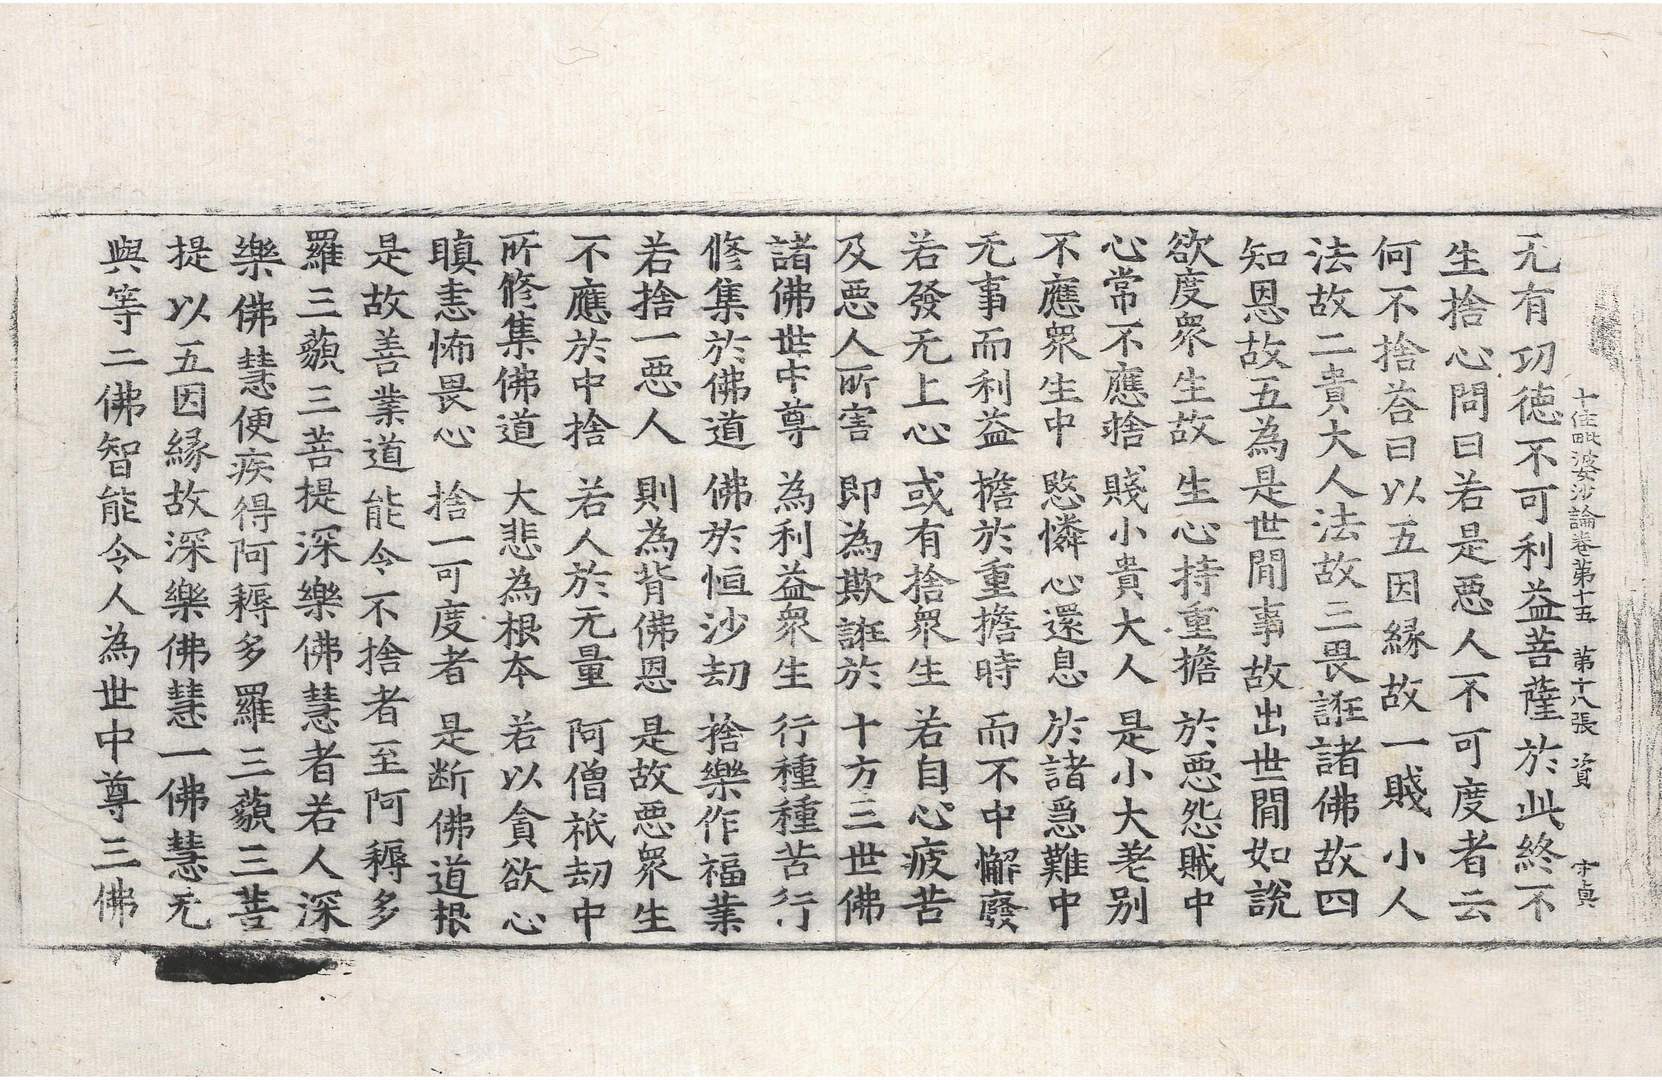 十住毗婆沙論卷第十五　第十八張　資　才眞
无有㓛德不可利益菩薩於此終不
生捨心問曰若是惡人不可度者云
何不捨荅曰以五因緣故一賤小人
法故二貴大人法故三畏誑諸佛故四
知恩故五為是世間事故出世間如說
欲度衆生故　生心持重擔　於惡怨賊中
心常不應捨　賤小貴大人　是小大差別
不應衆生中　愍憐心還息　於諸急難中
无事而利益　擔於重擔時　而不中懈廢
若發无上心　或有捨衆生　若自心疲苦
及惡人所害　即為欺誑於　十方三世佛
諸佛世中尊　為利益衆生　行種種苦行
修集於佛道　佛於恒沙劫　捨樂作福業
若捨一惡人　則為背佛恩　是故惡衆生
不應於中捨　若人於无量　阿僧祇劫中
所修集佛道　大悲為根本　若以貪欲心
瞋恚怖畏心　捨一可度者　是断佛道根
是故善業道能令不捨者至阿耨多
羅三藐三菩提深樂佛慧者若人深
樂佛慧便疾得阿耨多羅三藐三菩
提以五因緣故深樂佛慧一佛慧无
與等二佛智能令人為世中尊三佛